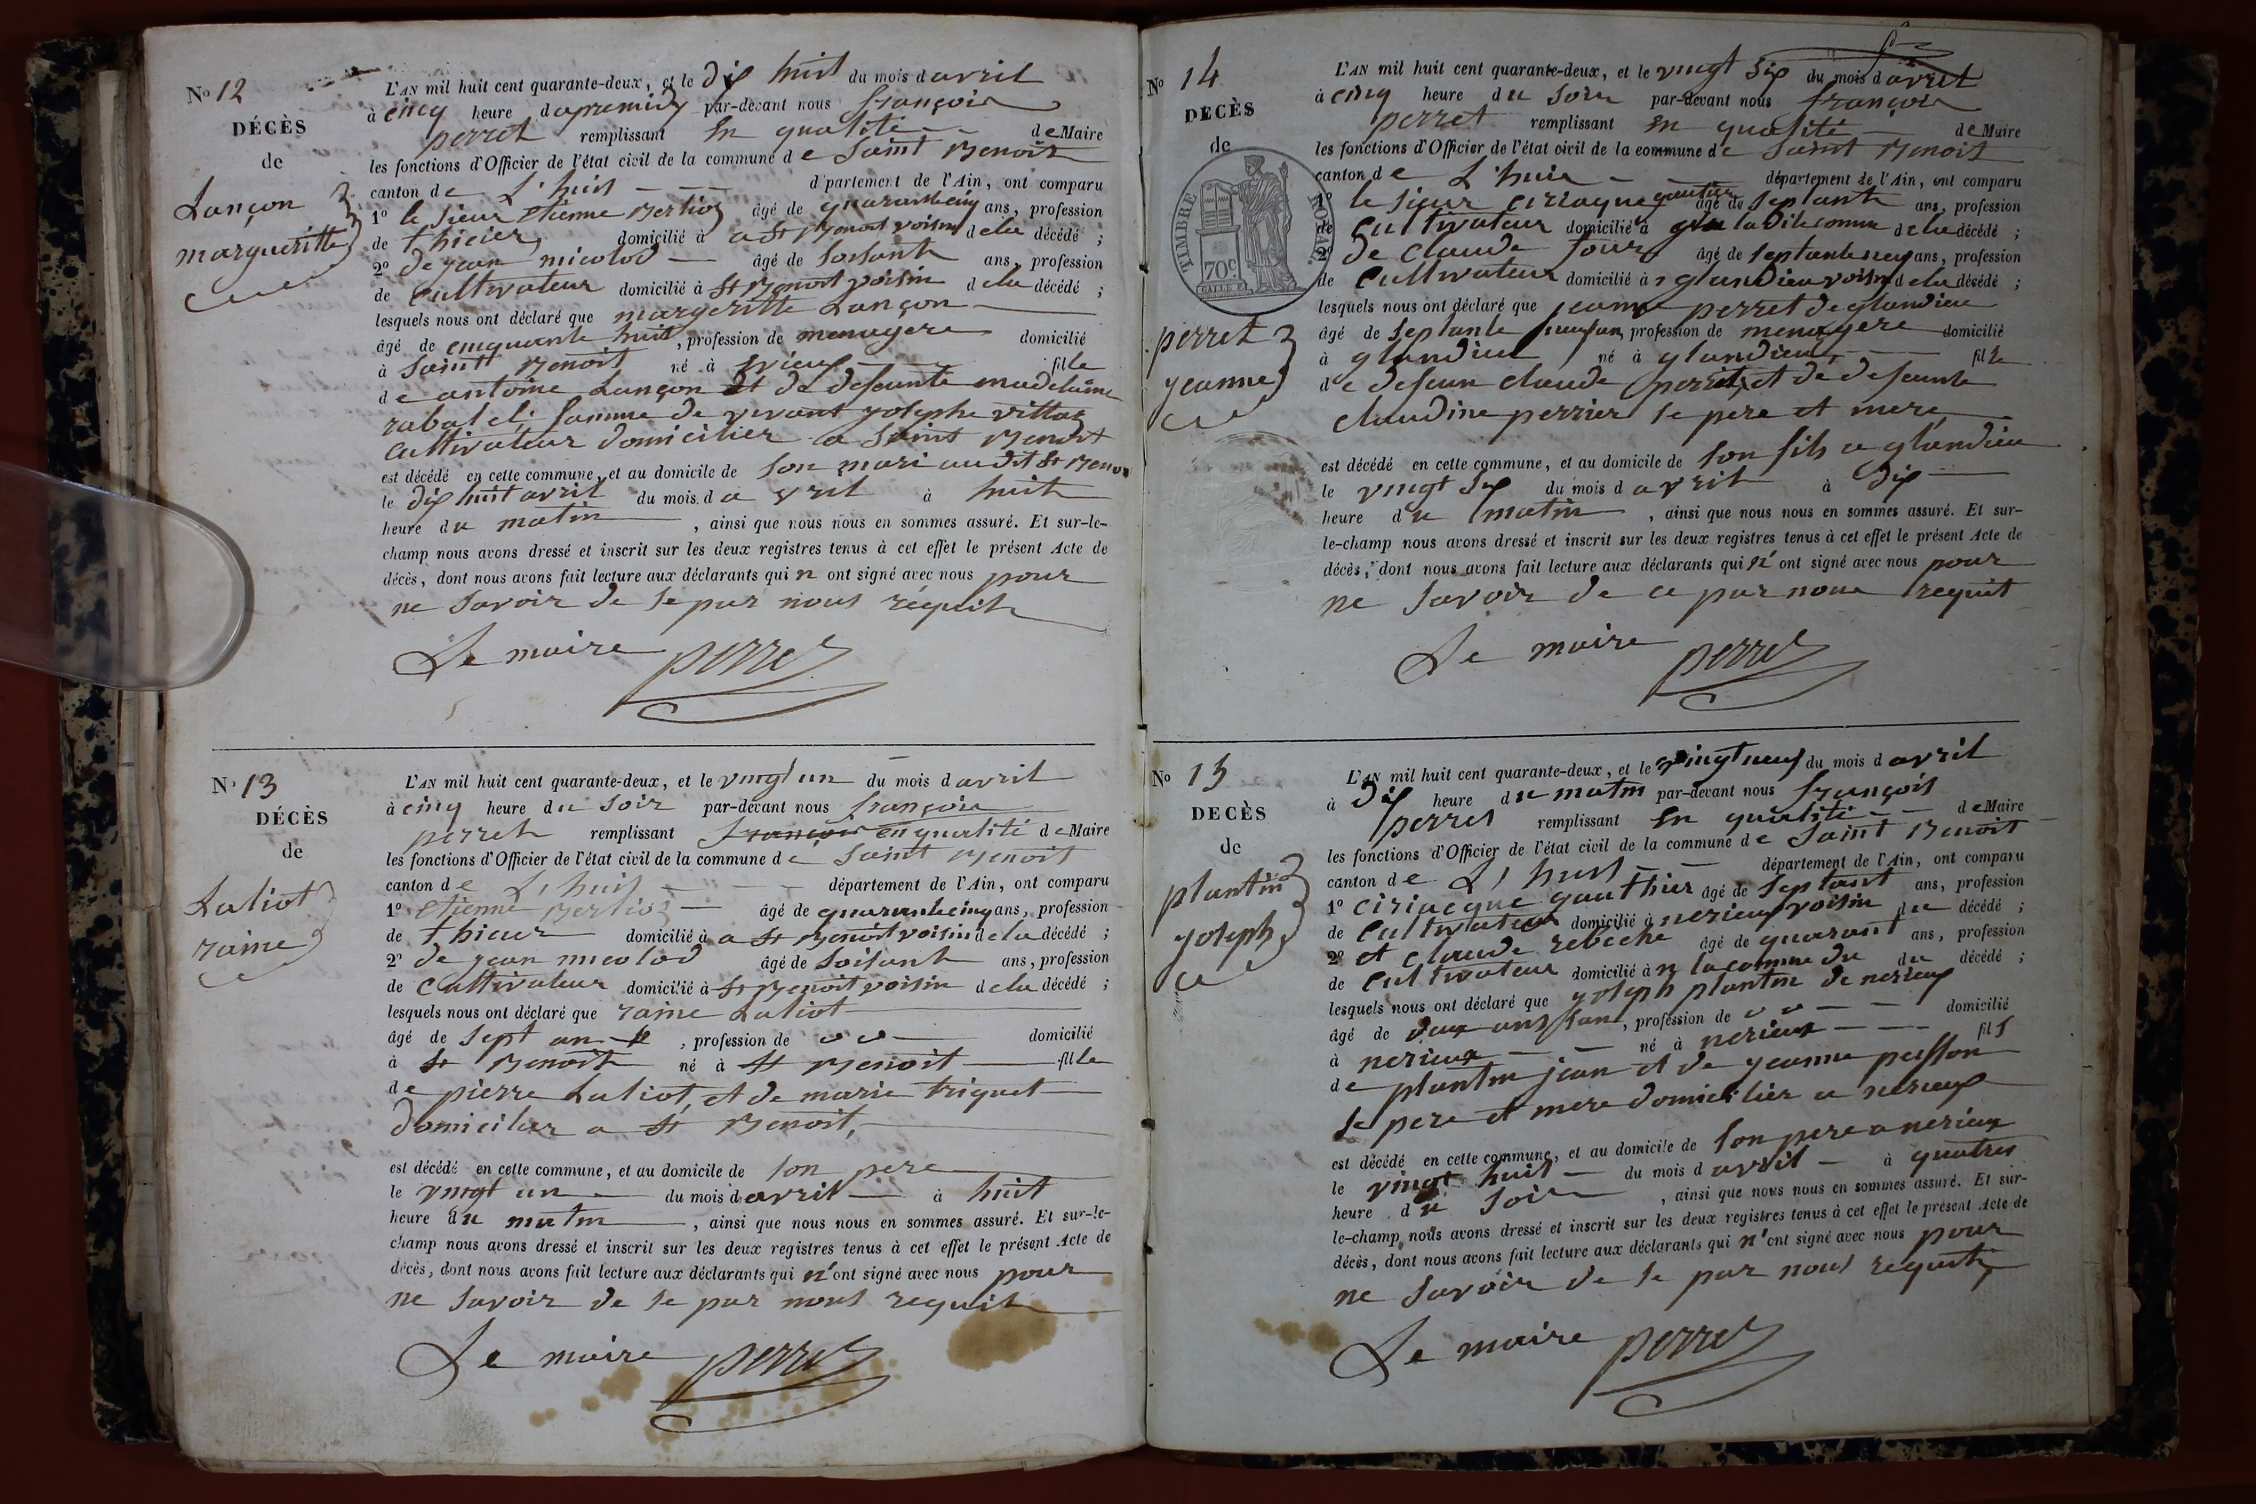 No 12
DÉCÈS
de
Lançon
margueritte
L'AN mil huit cent quarante-deux, et le dix huit du mois d avril
à cinq heure d apremidy par-devant nous françois
perret remplissant En qualité de Maire
les fonctions d'Officier de l'état civil de la commune de Saint Benoit
canton de L'huis département de l'Ain, ont comparu
1º le sieur Etienne Berlioz âgé de quarante cinq ans, profession
de domicilié à a St Benoit voisin de la décédé ;
2º de jean micolod âgé de soisante ans, profession
de Cultivateur domicilié à St Benoit voisin de la décédé ;
lesquels nous ont déclaré que margeritte Lançon
âgé de cinquante huit, profession de menagere domicilié
à Saintt Benoit né à fille
de antoine Lançon Et de defeunte madelaine
famme de vivant josephe villaz
Cultivateur domicilier a Saint Benoit
est décédé en cette commune, et au domicile de son mari audit St Benoi
le dix huit avril du mois d avril à huit
heure du matin, ainsi que nous nous en sommes assuré. Et sur-le-
champ nous avons dressé et inscrit sur les deux registres tenus à cet effet le présent Acte de
décès, dont nous avons fait lecture aux déclarants qui n ont signé avec nous pour
ne savoir de se par nous réquit
Le maire perret
No 13
DÉCÈS
de
Laliot
raine
L'AN mil huit cent quarante-deux, et le vingt un du mois d avril
à cinq heure du soir par-devant nous françois
perret remplissant françois en qualité de Maire
les fonctions d'Officier de l'état civil de la commune de Saint Benoit
canton de L'huis département de l'Ain, ont comparu
1º Etienne Berlioz âgé de quarante cinq ans, profession
de domicilié à a St Benoit voisin de la décédé ;
2º de jean micolod âgé de soisante ans, profession
de Cultivateur domicilié à St Benoit voisin de la décédé ;
lesquels nous ont déclaré que raine Laliot
âgé de sept an, profession de domicilié
à St Benoit né à St Benoit fille
de pierre Laliot, et de marie triquet
domicilier a St Benoit,
est décédé en cette commune, et au domicile de son pere
le vingt un du mois d avril à huit
heure du matin, ainsi que nous nous en sommes assuré. Et sur-le-
champ nous avons dressé et inscrit sur les deux registres tenus à cet effet le présent Acte de
décès, dont nous avons fait lecture aux déclarants qui n' ont signé avec nous pour
ne savoir de se par nous requit
Le maire perret
No 14
DECÈS
de
TIMBRE ROYAL.
70c
perret
jeanne
L'AN mil huit cent quarante-deux, et le vingt six du mois d avril
à cinq heure du soir par-devant nous françois
perret remplissant En qualité de Maire
les fonctions d'Officier de l'état civil de la commune de Saint Benoit
canton de L'huis département de l'Ain, ont comparu
1º le sieur ciriaque gautier âgé de septante ans, profession
de cultivateur domicilié à la dite comune de la décédé ;
2º de claude âgé de septante ans, profession
de Cultivateur domicilié à glandieu voisin de la décédé ;
lesquels nous ont déclaré que jeanne perret de glandieu
âgé de septante neuf an, profession de menagere domicilié
à glandieu né à glandieu fille
de defeun claude perret, et de defeunte
claudine perrier se pere et mere
est décédé en cette commune, et au domicile de son fils a glandieu
le vingt six du mois d avril à dix
heure du matin, ainsi que nous nous en sommes assuré. Et sur-
le-champ nous avons dressé et inscrit sur les deux registres tenus à cet effet le présent Acte de
décès, dont nous avons fait lecture aux déclarants qui n' ont signé avec nous pour
ne savoir de ce par nous requit
Le maire perret
No 15
DECÈS
de
plantin
joseph
L'AN mil huit cent quarante-deux, et le vingt neuf du mois d avril
à dix heure du matin par-devant nous françois
perret remplissant En qualité de Maire
les fonctions d'Officier de l'état civil de la commune de Saint Benoit
canton de L'huis département de l'Ain, ont comparu
1º ciriacque gauthier âgé de septant ans, profession
de Cultivateur domicilié à nerieux voisin du décédé ;
2º et claude rebeche âgé de quarant ans, profession
de cultivateur domicilié à la comune du du décédé ;
lesquels nous ont déclaré que joseph plantin de nerieux
âgé de deux ans, profession de domicilié
à nerieux né à nerieux fils
de plantin jean et de jeanne
se pere et mere domicilier a nerieux
est décédé en cette commune, et au domicile de son pere a nerieux
le vingt huit du mois d avril à quatres
heure du soir, ainsi que nous nous en sommes assuré. Et sur-
le-champ nous avons dressé et inscrit sur les deux registres tenus à cet effet le présent Acte de
décès, dont nous avons fait lecture aux déclarants qui n' ont signé avec nous pour
ne savoir de se par nous requit
Le maire perret